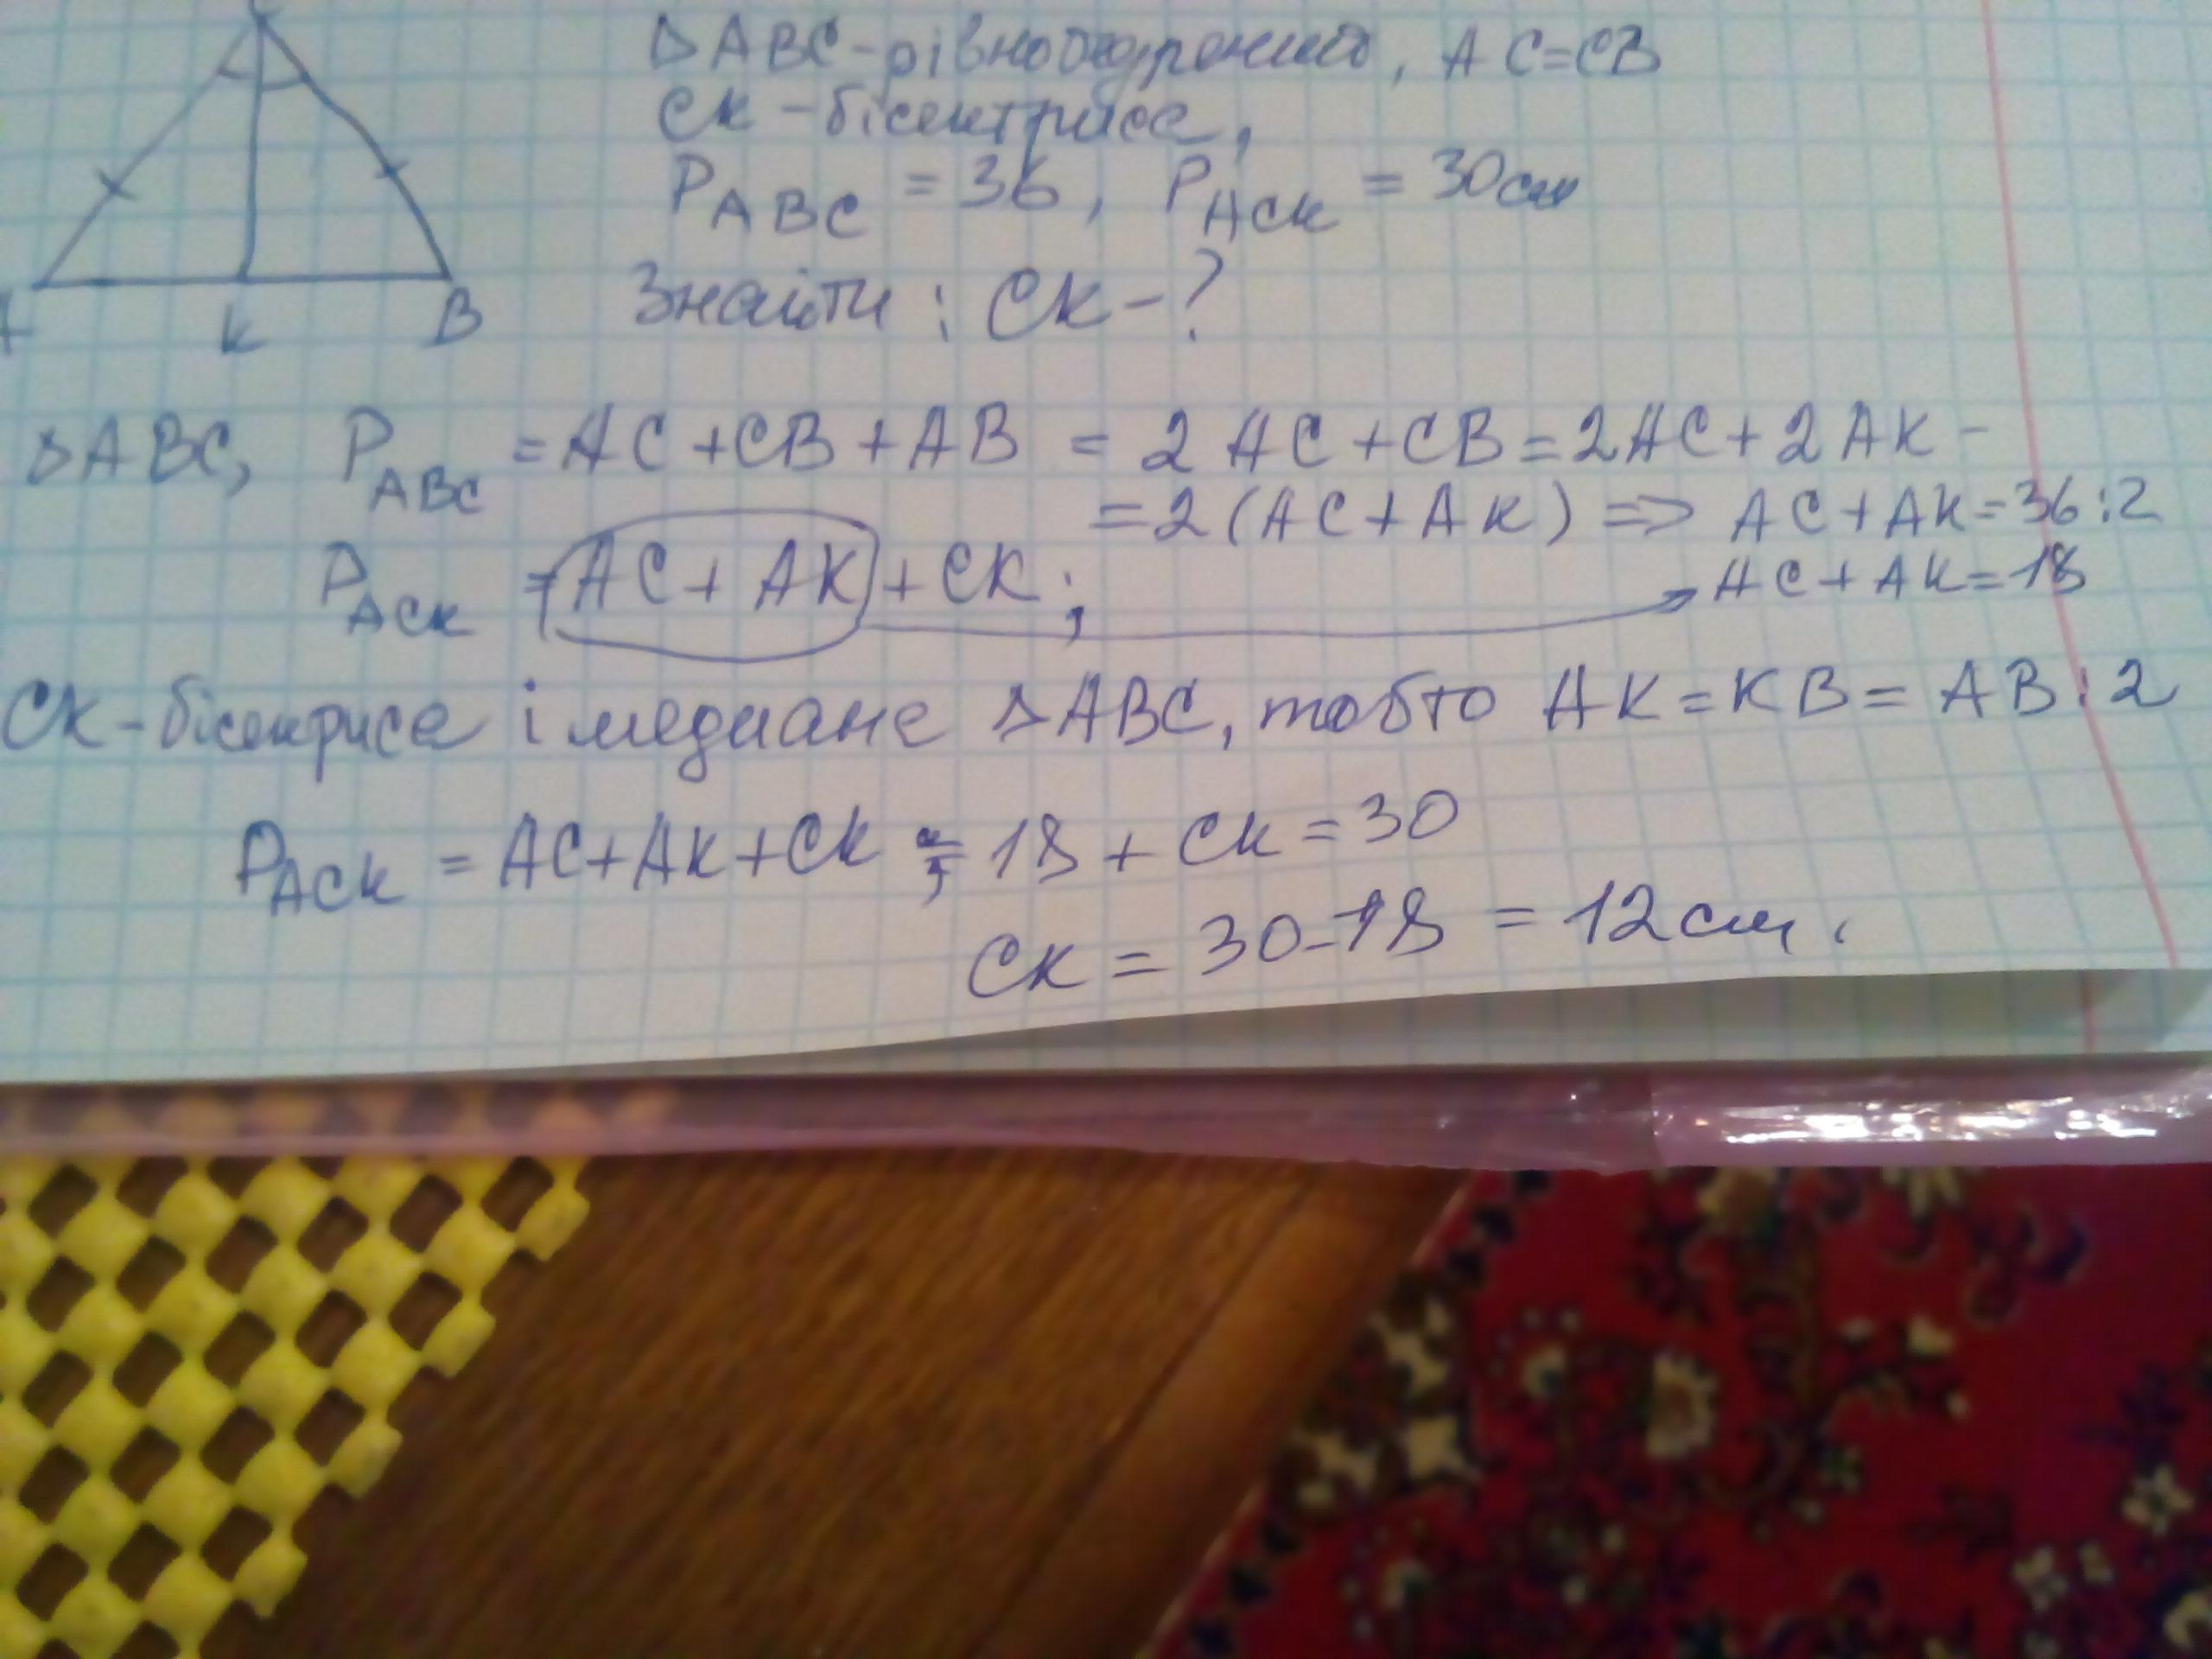 ΔABC-рівнобедрений, AC=CB
CK-бісектриса,
P ABC = 36, P ACK = 30см
A K B
Знайти: CK-?
ΔABC, P ABC = AC+CB+AB = 2AC+CB=2AC+2AK-
=2(AC+AK) => AC+AK=36:2
P ACK = AC+AK+CK; AC+AK=18
CK-бісектриса і медиана ΔABC, тобто AK=KB=AB:2
P ACK = AC+AK+CK = 18+CK=30
CK=30-18=12см.